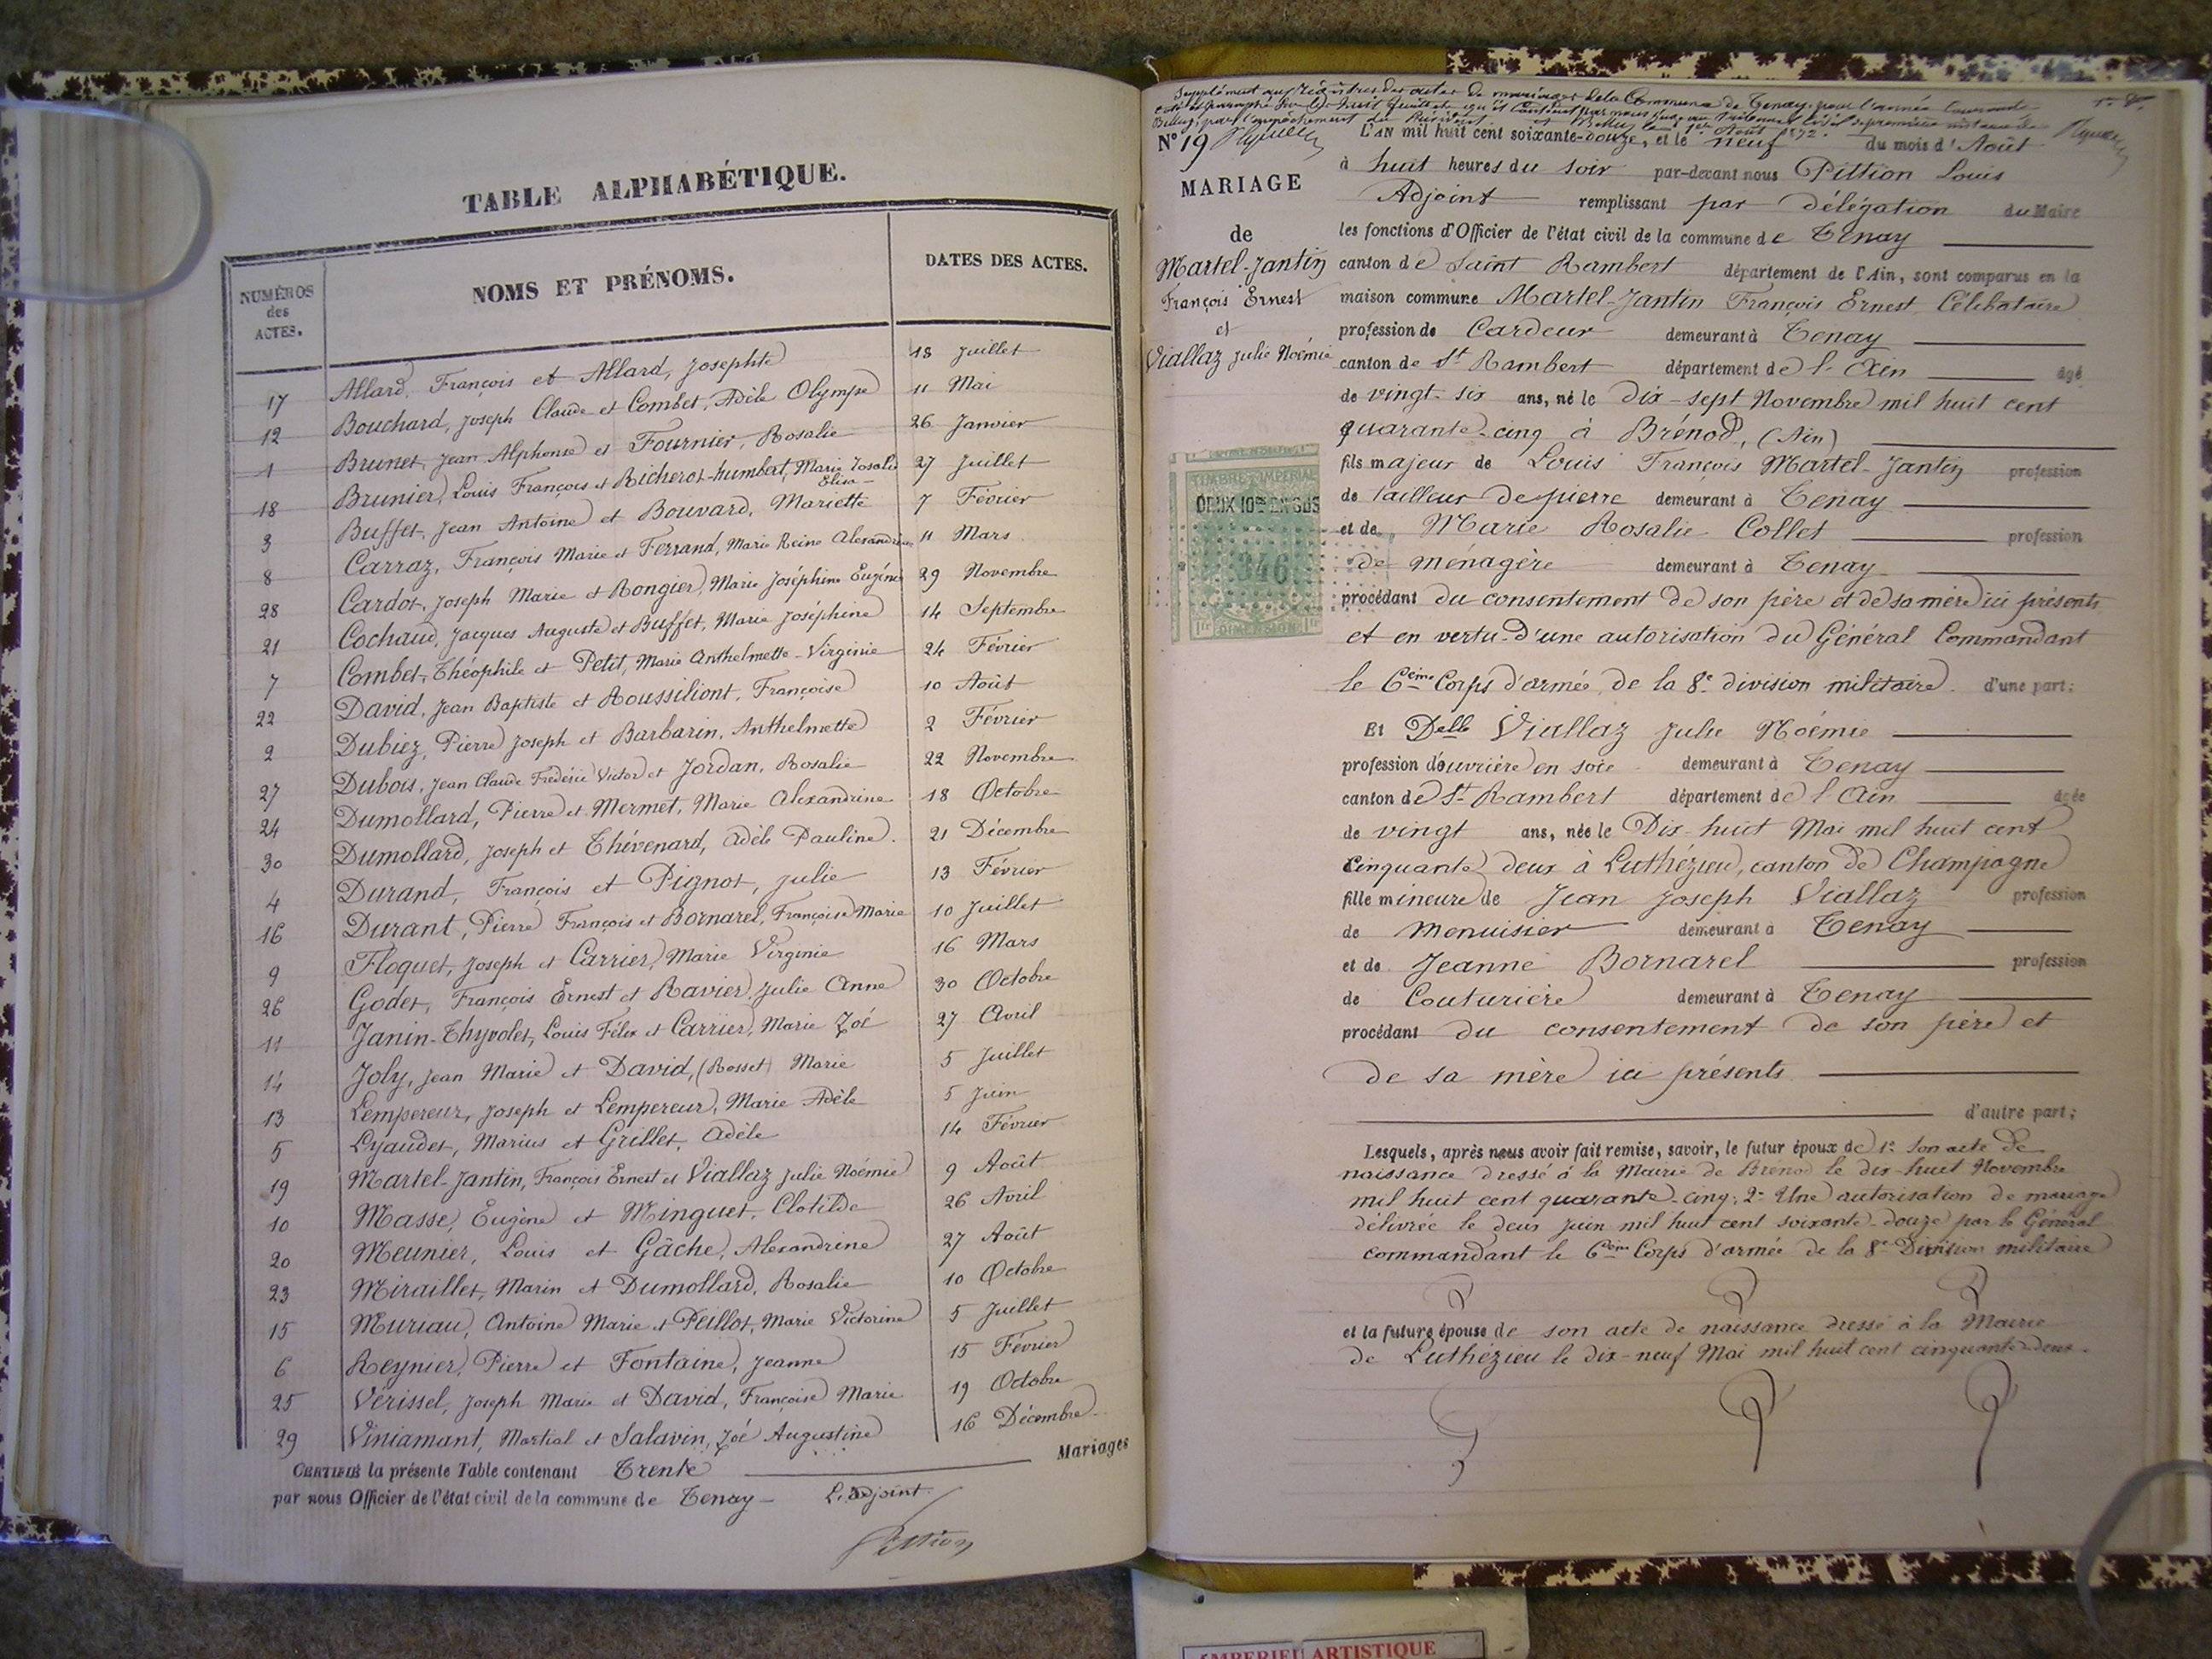 TABLE ALPHABÉTIQUE.
NUMÉROS des ACTES. NOMS ET PRÉNOMS. DATES DES ACTES.
17 Allard, François et Allard, Josephte 18 Juillet
12 Bouchard, Joseph Claude et Combet, Adèle Olympe 11 Mai
1 Brunet, Jean Alphonse et Fournier, Rosalie 26 Janvier
18 Brunier, Louis François et Richerot-humbert, Marie Rosalie Elisa 27 Juillet
3 Buffet, Jean Antoine et Bouvard, Mariette 7 Février
8 Carraz, François Marie et Ferrand, Marie Reine Alexandrine 11 Mars
28 Cardot, Joseph Marie et Rongier, Marie Joséphine Eugénie 29 Novembre
21 Cochaud, Jacques Auguste et Buffet, Marie Joséphine 14 Septembre
7 Combet, Théophile et Petit, Marie Anthelmette-Virginie 24 Février
22 David, Jean Baptiste et Roussiliont, Françoise 10 Août
2 Dubiez, Pierre Joseph et Barbarin, Anthelmette 2 Février
27 Dubois, Jean Claude Frédéric Victor et Jordan, Rosalie 22 Novembre
24 Dumollard, Pierre et Mermet, Marie Alexandrine 18 Octobre
30 Dumollard, Joseph et Thévenard, Adèle Pauline. 21 Décembre
4 Durand, François et Pignot, Julie 13 Février
16 Durant, Pierre François et Bornarel, Françoise Marie 10 Juillet
9 Floquet, Joseph et Carrier, Marie Virginie 16 Mars
26 Godet, François Ernest et Ravier, Julie Anne 30 Octobre
11 Janin-Thyvolet, Louis Félix et Carrier, Marie Zoé 27 Avril
14 Joly, Jean Marie et David, (Rosset) Marie 5 Juillet
13 Lempereur, Joseph et Lempereur, Marie Adèle 5 Juin
5 Lyaudet, Marius et Grillet, Adèle 14 Février
19 Martel-Jantin, François Ernest et Viallaz Julie Noémie 9 Août
10 Masse, Eugène et Minguet, Clotilde 26 Avril
20 Meunier, Louis et Gâche, Alexandrine 27 Août
23 Miraillet, Marin et Dumollard, Rosalie 10 Octobre
15 Muriau, Antoine Marie et Peillot, Marie Victorine 5 Juillet
6 Reynier, Pierre et Fontaine, Jeanne 15 Février
25 Vérissel, Joseph Marie et David, Françoise Marie 19 Octobre
29 Viniamant, Martial et Salavin, Zoé Augustine 16 Décembre
CERTIFIÉ la présente Table contenant Trente Mariages
par nous Officier de l'état civil de la commune de Tenay L'adjoint.
Pittion
Supplément aux Registres des actes de mariages de la Commune de Tenay, pour l'année courante
N° 19
MARIAGE
de
Martel-Jantin
François Ernest
et
Viallaz Julie Noémie
TIMBRE IMPERIAL
DEUX 10mes EN SUS
346
DIMENSION
L'AN mil huit cent soixante-douze, et le neuf du mois d'Août
à huit heures du soir par-devant nous Pittion Louis
Adjoint remplissant par délégation du Maire
les fonctions d'Officier de l'état civil de la commune de Tenay
canton de Saint Rambert département de l'Ain, sont comparus en la
maison commune Martel-Jantin François Ernest Célibataire
profession de Cardeur demeurant à Tenay
canton de St Rambert département de l'Ain âgé
de vingt-six ans, né le dix-sept Novembre mil huit cent
quarante-cinq à Brénod, (Ain)
fils majeur de Louis François Martel-Jantin profession
de tailleur de pierre demeurant à Tenay
et de Marie Rosalie Collet profession
de ménagère demeurant à Tenay
procédant du consentement de son père et de sa mère ici présents
et en vertu d'une autorisation du Général Commandant
le 6ème Corps d'armée de la 8e division militaire. d'une part;
Et Delle Viallaz Julie Noémie
profession d'ouvrière en soie demeurant à Tenay
canton de St Rambert département de l'Ain âgée
de vingt ans, née le Dix-huit Mai mil huit cent
cinquante deux à Luthézieu, canton de Champagne
fille mineure de Jean Joseph Viallaz profession
de menuisier demeurant à Tenay
et de Jeanne Bornarel profession
de Couturière demeurant à Tenay
procédant du consentement de son père et
de sa mère ici présents
d'autre part;
Lesquels, après nous avoir fait remise, savoir, le futur époux de 1° son acte de
naissance dressé à la Mairie de Brénod le dix-huit Novembre
mil huit cent quarante-cinq; 2° Une autorisation de mariage
délivrée le deux juin mil huit cent soixante-douze par le Général
commandant le 6ème Corps d'armée de la 8e Division militaire
et la future épouse de son acte de naissance dressé à la Mairie
de Luthézieu le dix-neuf Mai mil huit cent cinquante-deux.
ARTISTIQUE